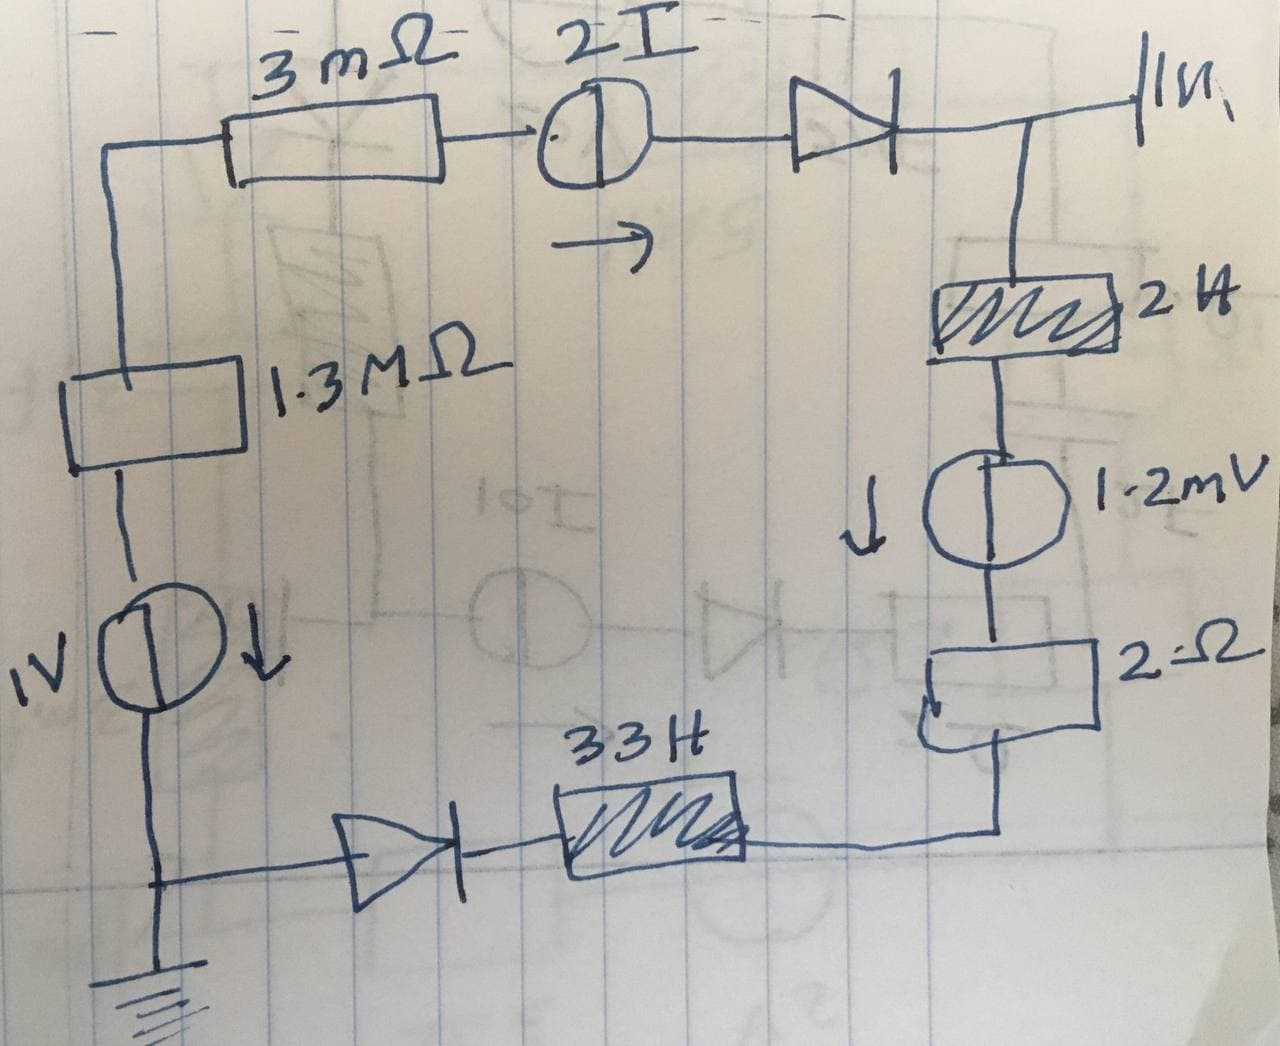 3mΩ
2I
2H
1.3MΩ
1.2mV
1V
2Ω
33H